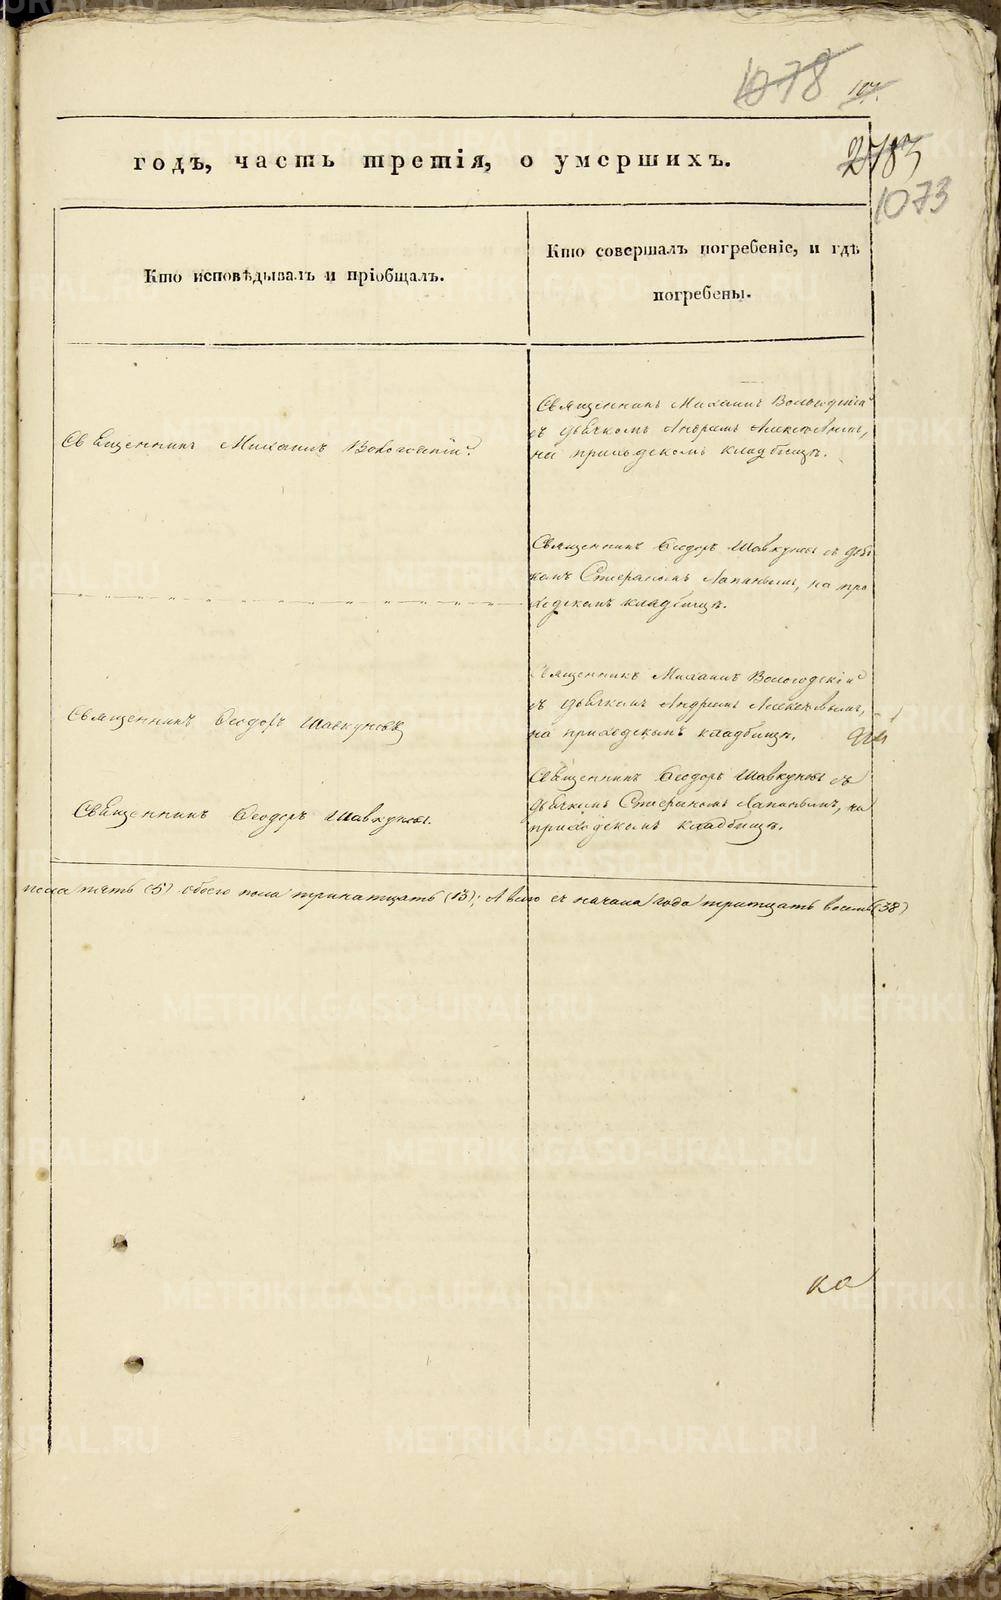 1078
107.
годъ, часть третія, о умершихъ.
2783
1073
Кто исповѣдывалъ и пріобщалъ.
Кто совершалъ погребеніе, и гдѣ
погребены.
Священникъ Михаилъ Вологодскій
съ дьячкомъ Андреемъ Алексѣевымъ,
на приходскомъ кладбищѣ.
Священникъ Михаилъ Вологодскій
Священникъ Ѳеодоръ Шавкуновъ съ дьяч
комъ Стефаномъ Лапинымъ, на при
ходскомъ кладбищѣ.
Священникъ Михаилъ Вологодскій
съ дьячкомъ Андреемъ Алексѣевымъ,
на приходскомъ кладбищѣ.
Священникъ Ѳеодоръ Шавкуновъ
Священникъ Ѳеодоръ Шавкуновъ съ
дьячкомъ Стефаномъ Лапинымъ, на
приходскомъ кладбищѣ.
Священникъ Ѳеодоръ Шавкуновъ.
пола пять (5) обоего пола тринатцать (13); А всего съ начала года тритцать восемь (38)
ка
METRIKI.GASO-URAL.RU